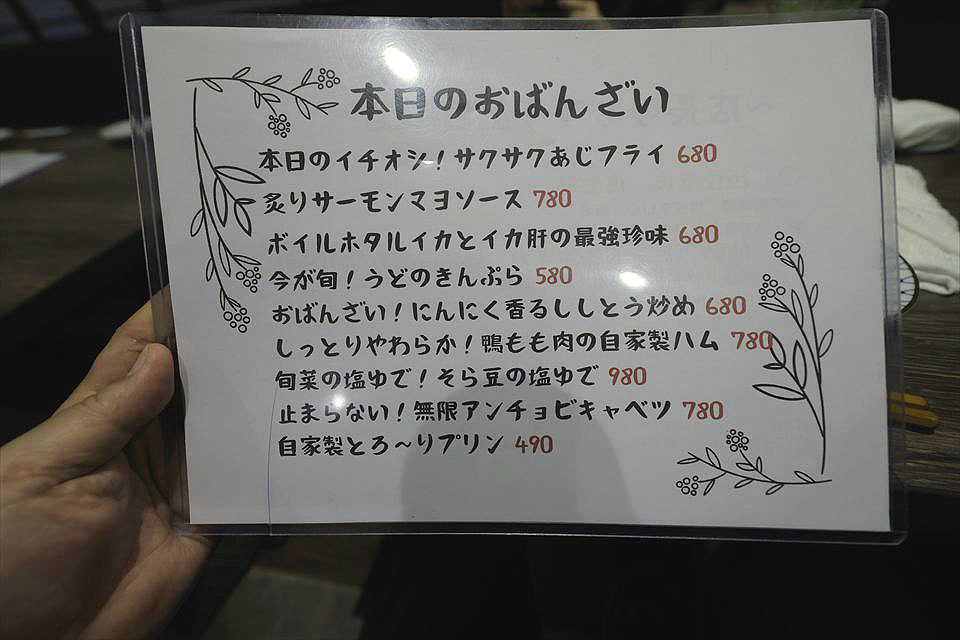 本日のおばんざい
本日のイチオシ！サクサクあじフライ 680
炙りサーモンマヨソース 780
ボイルホタルイカとイカ肝の最強珍味 680
今が旬！うどのきんぷら 580
おばんざい！にんにく香るししとう炒め 680
しっとりやわらか！鴨もも肉の自家製ハム 780
旬菜の塩ゆで！そら豆の塩ゆで 980
止まらない！無限アンチョビキャベツ 780
自家製とろ～りプリン 490